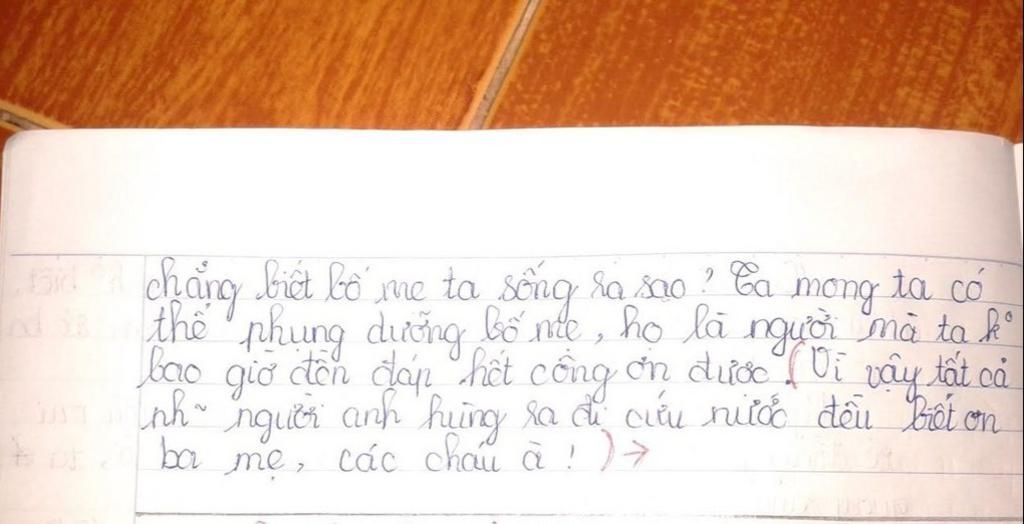 chẳng biết bố mẹ ta sống ra sao? Ta mong ta có
thể phụng dưỡng bố mẹ, họ là người mà ta k°
bao giờ đền đáp hết công ơn được. (Vì vậy tất cả
nh~ người anh hùng ra đi cứu nước đều biết ơn
ba mẹ, các cháu à! ) →